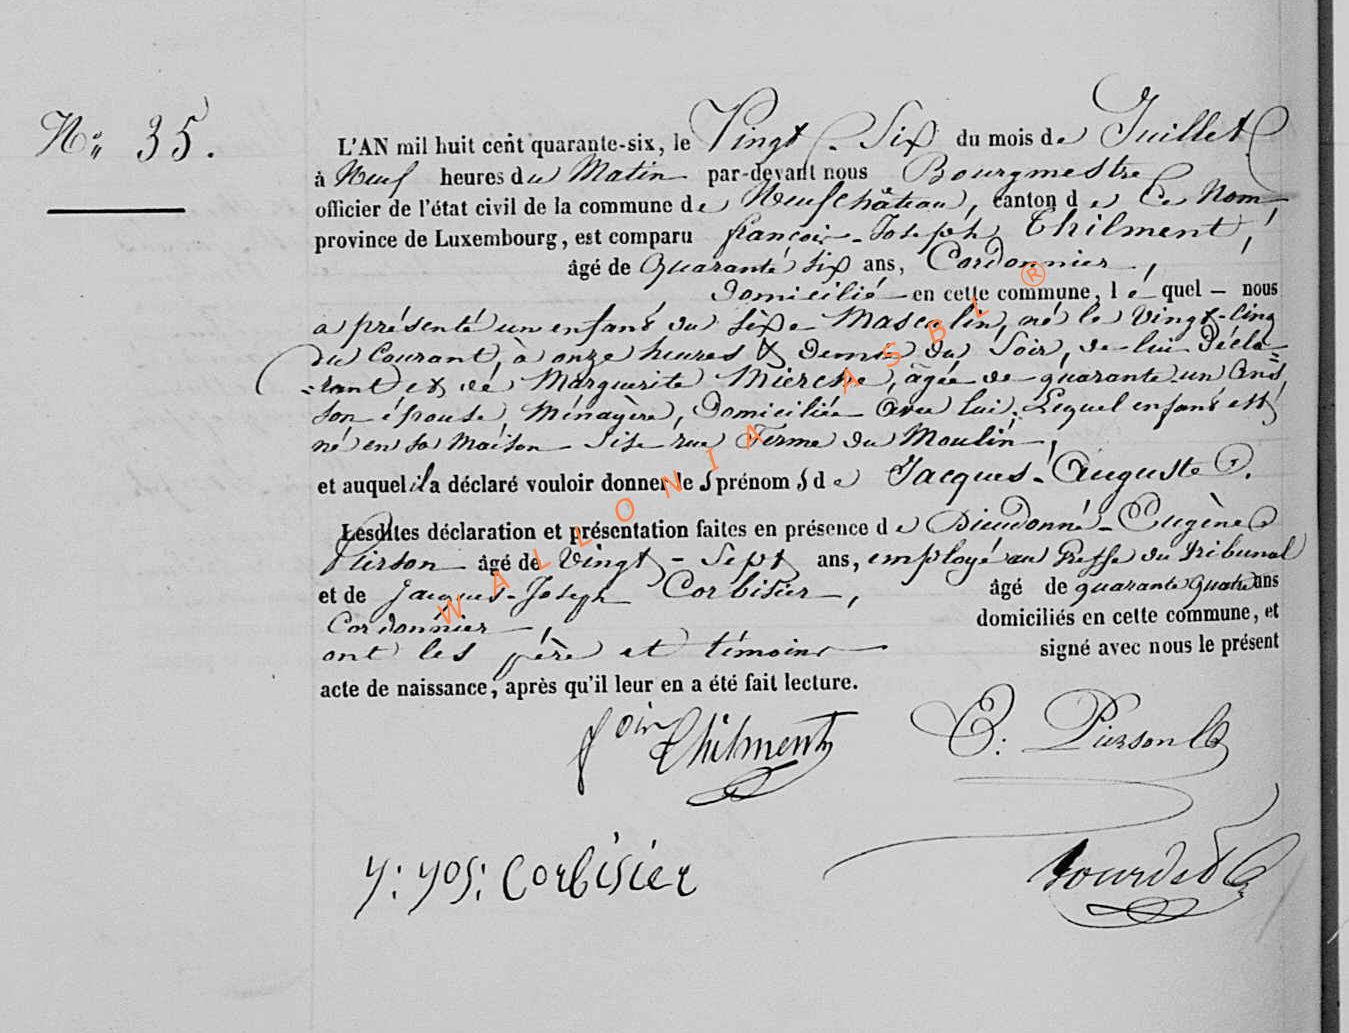 N° 35.
L'AN mil huit cent quarante-six, le Vingt-Six du mois de Juillet
à Neuf heures du Matin par-devant nous Bourgmestre
officier de l'état civil de la commune de Neufchâteau, canton de Ce Nom,
province de Luxembourg, est comparu françois-Joseph Thilment,
âgé de Quarante Six ans, Cordonnier,
Domicilié en cette commune, lequel nous
a présenté un enfant du Sèxe Masculin, né le Vingt-Cinq
du Courant, à onze heures & demie du Soir, de lui Décla=
=rant et de Marguerite, âgée de quarante-un Ans,
son épouse, Ménagère, Domiciliée avec lui; Lequel enfant est
né en sa Maison Sise rue Ferme du Moulin,
et auquel il a déclaré vouloir donner les prénoms de Jacques-Auguste.
Lesdites déclaration et présentation faites en présence de Dieudonné-Eugène
Pierson âgé de Vingt-Sept ans, employé au Greffe du Tribunal
et de Jacques-Joseph Corbisier, âgé de quarante Quatre ans
Cordonnier, domiciliés en cette commune, et
ont les père et témoins signé avec nous le présent
acte de naissance, après qu'il leur en a été fait lecture.
Thilment E: Pierson
y: yos: Corbisier Gourdet
WALLONIA ASBL ®